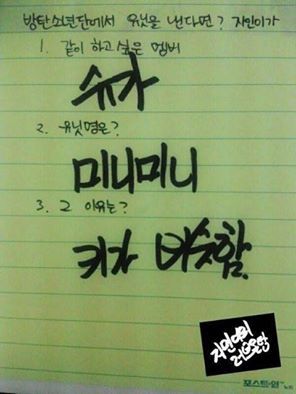 방탄소년단에서 유닛을 낸다면? 지민이가
1. 같이 하고 싶은 멤버
슈가
2. 유닛명은?
미니미니
3. 그 이유는?
키가 비슷함.
지민이의
포스트잇 노트